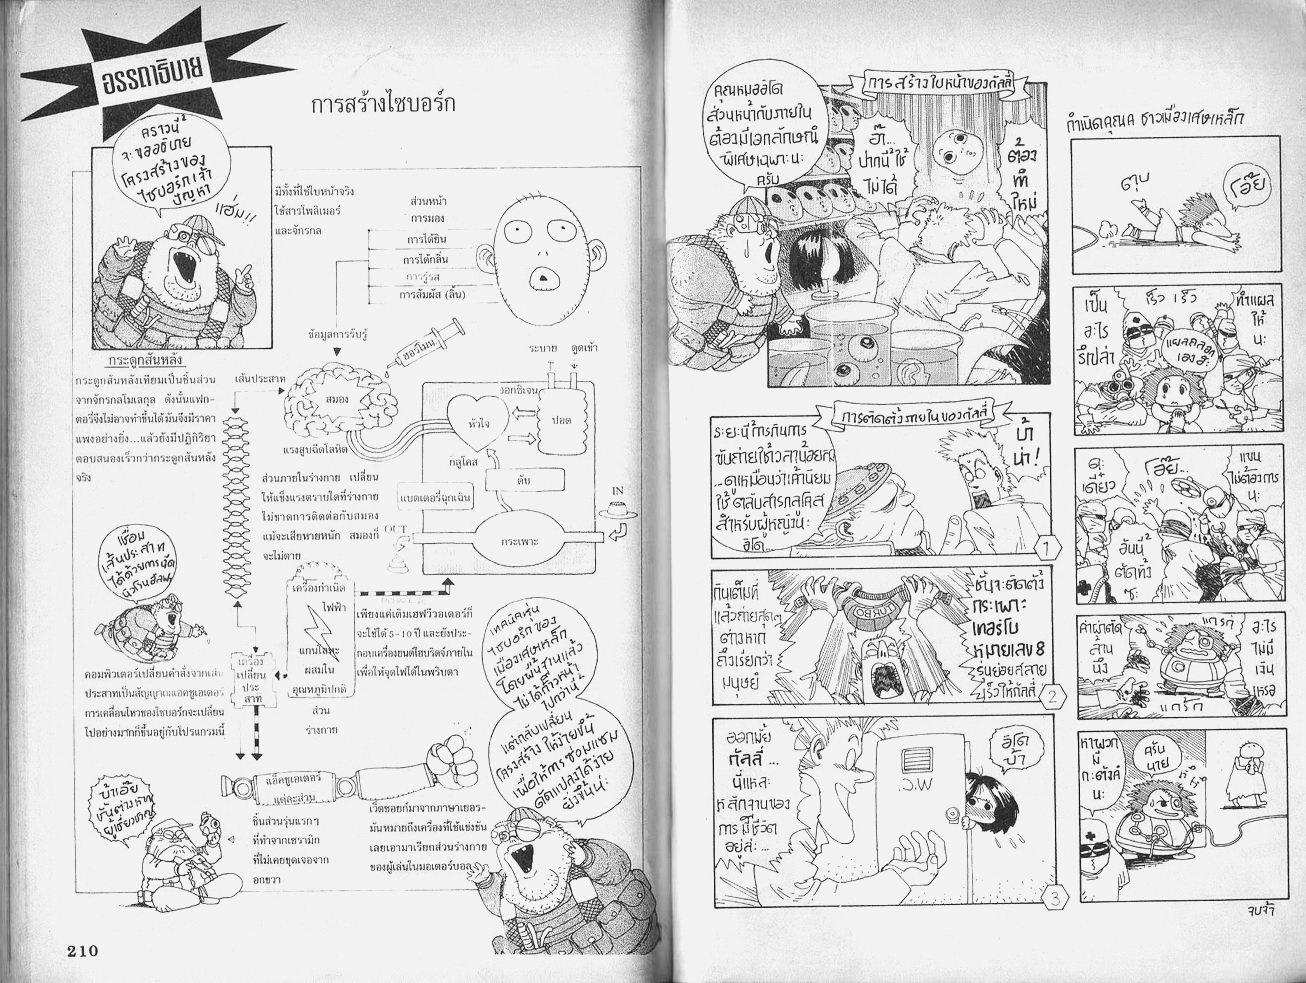 อรรถาธิบาย
การสร้างไซบอร์ก
คราวนี้
จะขออธิบาย
โครงสร้างของ
ไซบอร์กเจ้า
ปัญหา
แฮ่ม!!
มีทั้งที่ใช้ใบหน้าจริง
ใช้สารโพลิเมอร์
และจักรกล
ส่วนหน้า
การมอง
การได้ยิน
การได้กลิ่น
การรู้รส
การสัมผัส (ลิ้น)
ข้อมูลการรับรู้
ฮอร์โมน
กระดูกสันหลัง
กระดูกสันหลังเทียมเป็นชิ้นส่วน
จากจักรกลโมเลกุล ดังนั้นแฟก-
ตอรี่จึงไม่อาจทำขึ้นได้มันจึงมีราคา
แพงอย่างยิ่ง...แล้วยังมีปฏิกิริยา
ตอบสนองเร็วกว่ากระดูกสันหลัง
จริง
เส้นประสาท
สมอง
แรงสูบฉีดโลหิต
ระบาย ดูดเข้า
ออกซิเจน
หัวใจ
ปอด
กลูโคส
ตับ
แบตเตอรี่ฉุกเฉิน
กระเพาะ
IN
OUT
ส่วนภายในร่างกาย เปลี่ยน
ให้แข็งแรงตราบใดที่ร่างกาย
ไม่ขาดการติดต่อกับสมอง
แม้จะเสียหายหนัก สมองก็
จะไม่ตาย
เชื่อม
เส้นประสาท
ได้ด้วยการฉีด
เครื่องกำเนิด
ไฟฟ้า
แกนโลหะ
ผสมใน
อุณหภูมิปกติ
ส่วน
ร่างกาย
เพียงแค่เติมเอฟวีวอเตอร์ก็
จะใช้ได้ 5-10 ปี และยังประ-
กอบเครื่องยนต์ไฮบริดจ์ภายใน
เพื่อให้จุดไฟได้ในพริบตา
เครื่อง
เปลี่ยน
ประ
สาท
คอมพิวเตอร์เปลี่ยนคำสั่งจากเส้น
ประสาทเป็นสัญญาณแอคชูเอเตอร์
การเคลื่อนไหวของไซบอร์กจะเปลี่ยน
ไปอย่างมากก็ขึ้นอยู่กับโปรแกรมนี้
เทคนิคหุ่น
ไซบอร์กของ
เมืองเศษเหล็ก
โดยพื้นฐานแล้ว
ไม่ได้ก้าวหน้า
ไปกว่านี้
แต่กลับเปลี่ยน
โครงสร้างให้ง่ายขึ้น
เพื่อให้การซ่อมแซม
ดัดแปลงได้ง่าย
ยิ่งขึ้นน่ะ
แอ็คชูเอเตอร์
แต่ละส่วน
บ้าเอ๊ย
ชั้นต่างหาก
ผู้เชี่ยวชาญ
ชิ้นส่วนรุ่นแรกๆ
ที่ทำจากเซรามิก
ที่ไม่เคยขุดเจอจาก
ของผู้เล่นในมอเตอร์บอล
มันหมายถึงเครื่องที่ใช้แข่งขัน
เลยเอามาเรียกส่วนร่างกาย
210
การสร้างใบหน้าของกัลลี่
คุณหมออิโด
ส่วนหน้ากับภายใน
ต้องมีเอกลักษณ์
พิเศษเฉพาะนะ
ครับ
อ๊า..
ปากนี่ใช้
ไม่ได้
ต้อง
ทำ
ใหม่
การติดตั้งภายในของกัลลี่
ระยะนี้การกินการ
ขับถ่ายใช้เวลาน้อยลง
...ดูเหมือนว่าเค้านิยม
ใช้ตลับสารกลูโคส
สำหรับผู้หญิงน่ะ
อิโด...
บ้า
น่า!
1
กินเต็มที่
แล้วถ่ายสุดๆ
ต่างหาก
ถึงเรียกว่า
มนุษย์
TURBO 8
ชั้นจะติดตั้ง
กระเพาะ
เทอร์โบ
หมายเลข 8
2
ออกมั้ย
กัลลี่...
นี่แหละ
หลักฐานของ
การมีชีวิต
อยู่ล่ะ...
S.W
อิโด
บ้า
3
กำเนิดคุณค ชาวเมืองเศษเหล็ก
ตุบ
โอ๊ย
เป็น
อะไร
รึเปล่า
เร็ว เร็ว
ทำแผล
ให้
นะ
แผลถลอก
เองฮะ
ดะ
เดี๋ยว
โอ๊ย...
แขน
ไม่ต้องการ
นะ
อันนี้
ตัดทิ้ง
ซะ
ค่าผ่าตัด
ล้าน
นึง
แกร๊ก
แกร๊ก
อะไร
ไม่มี
เงิน
เหรอ
หาพวก
มี
กะตังค์
น่ะ
ครับ
นาย
หึหึ
จบจ้า